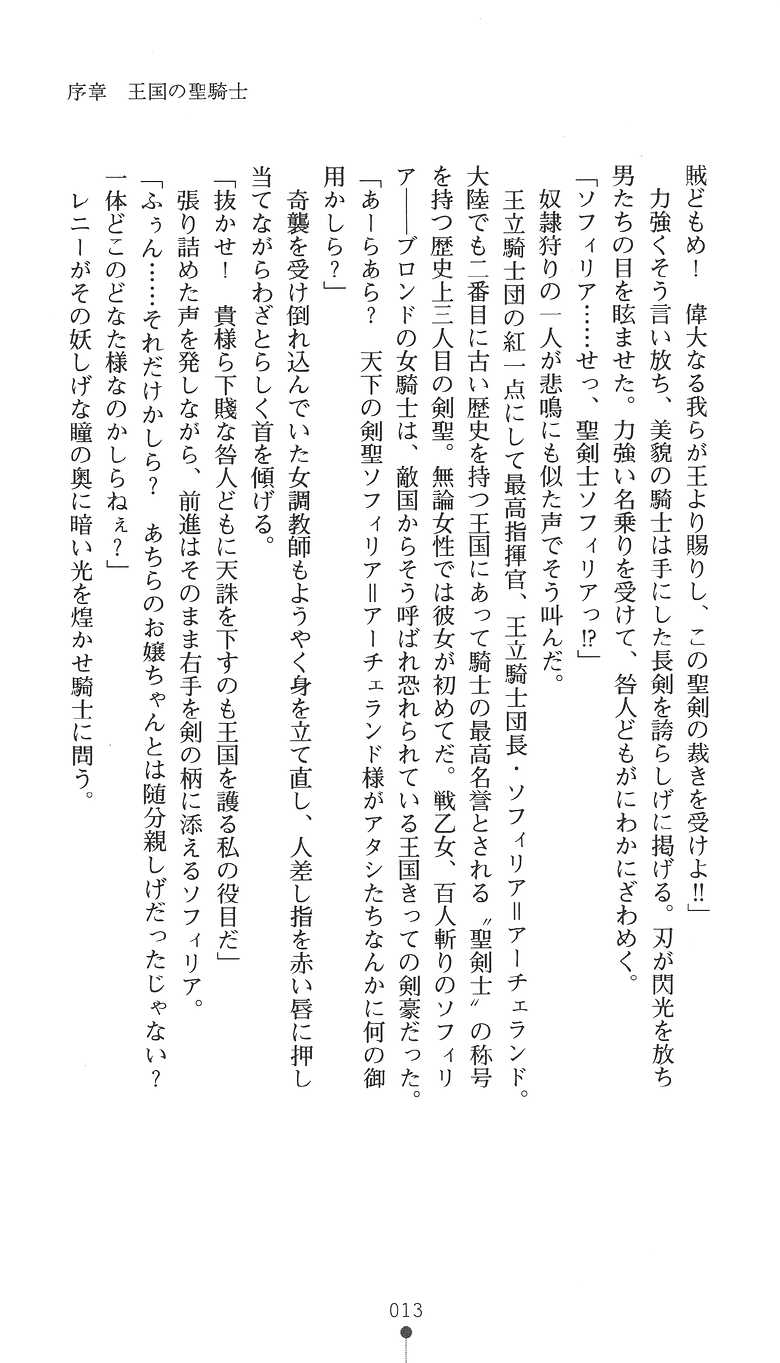 序章　王国の聖騎士
賊どもめ！　偉大なる我らが王より賜りし、この聖剣の裁きを受けよ!!」
　力強くそう言い放ち、美貌の騎士は手にした長剣を誇らしげに掲げる。刃が閃光を放ち
男たちの目を眩ませた。力強い名乗りを受けて、咎人どもがにわかにざわめく。
「ソフィリア……せっ、聖剣士ソフィリアっ!?」
　奴隷狩りの一人が悲鳴にも似た声でそう叫んだ。
　王立騎士団の紅一点にして最高指揮官、王立騎士団長・ソフィリア＝アーチェランド。
大陸でも二番目に古い歴史を持つ王国にあって騎士の最高名誉とされる〝聖剣士〟の称号
を持つ歴史上三人目の剣聖。無論女性では彼女が初めてだ。戦乙女、百人斬りのソフィリ
ア――ブロンドの女騎士は、敵国からそう呼ばれ恐れられている王国きっての剣豪だった。
「あーらあら？　天下の剣聖ソフィリア＝アーチェランド様がアタシたちなんかに何の御
用かしら？」
　奇襲を受け倒れ込んでいた女調教師もようやく身を立て直し、人差し指を赤い唇に押し
当てながらわざとらしく首を傾げる。
「抜かせ！　貴様ら下賤な咎人どもに天誅を下すのも王国を護る私の役目だ」
　張り詰めた声を発しながら、前進はそのまま右手を剣の柄に添えるソフィリア。
「ふぅん……それだけかしら？　あちらのお嬢ちゃんとは随分親しげだったじゃない？
一体どこのどなた様なのかしらねぇ？」
　レニーがその妖しげな瞳の奥に暗い光を煌かせ騎士に問う。
013